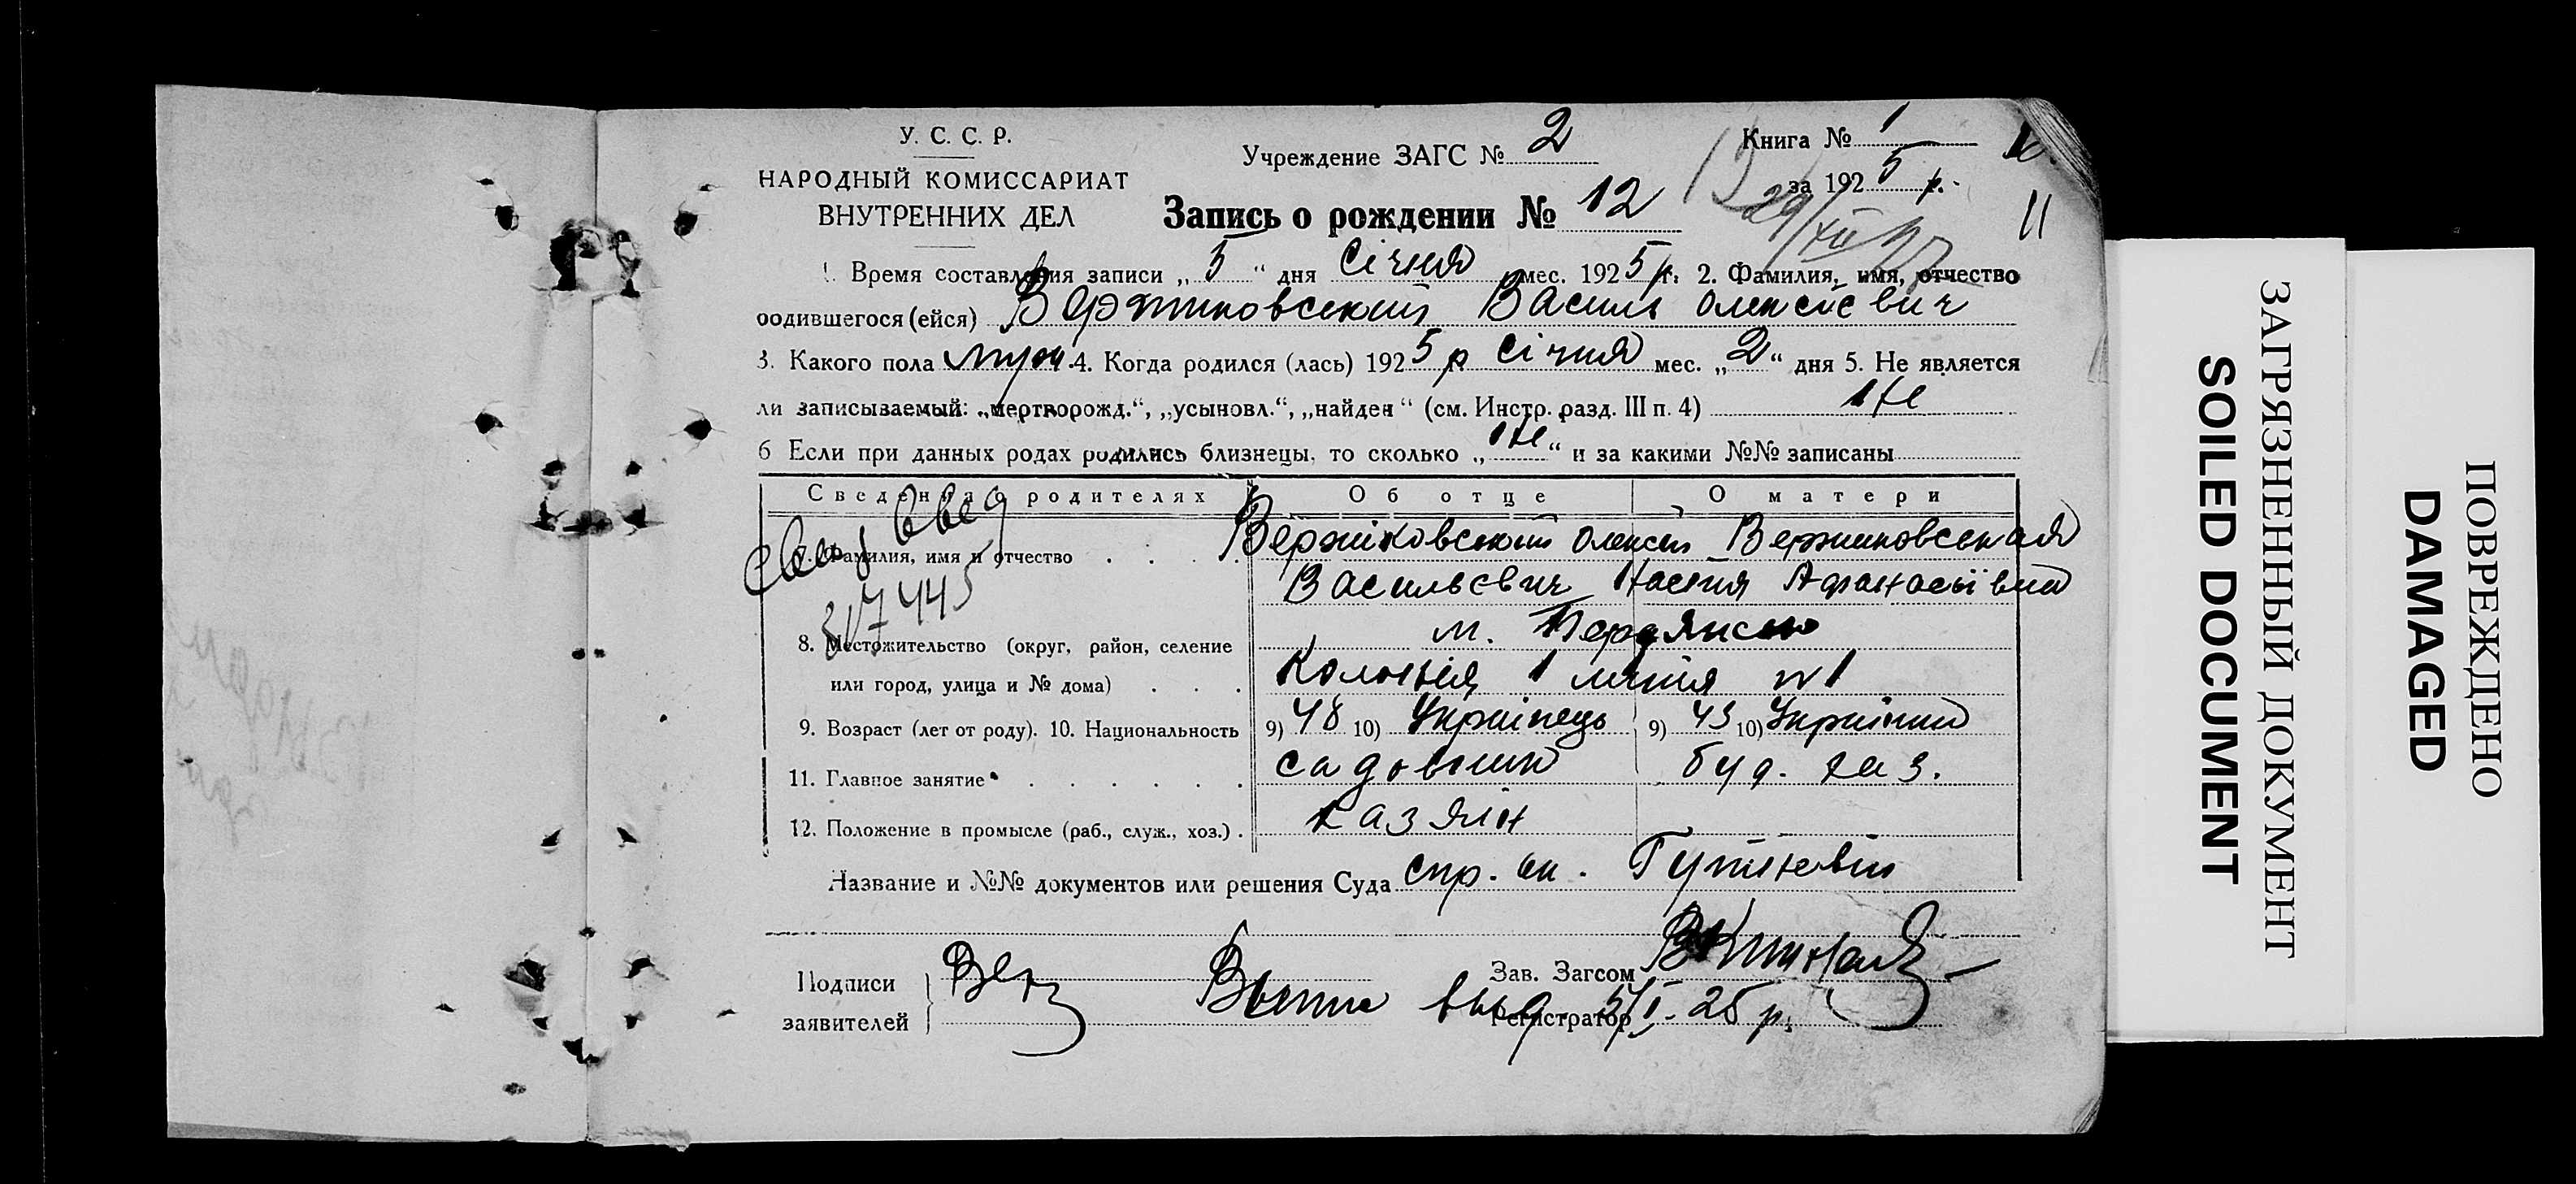 У. С. С. Р.
НАРОДНЫЙ КОМИССАРИАТ
ВНУТРЕННИХ ДЕЛ
Учреждение ЗАГС № 2
Книга № 1
за 1925 р.
11
Запись о рождении № 12
1. Время составления записи „5“ дня Січня мес. 1925 г. 2. Фамилия, имя, отчество
родившегося (ейся) Василь Олексіевич
3. Какого пола муж. 4. Когда родился (лась) 1925 р Січня мес. „2“ дня 5. Не является
ли записываемый: „мертворожд.“, „усыновл.“, „найден“ (см. Инстр. разд. III п. 4) Не
6 Если при данных родах родились близнецы, то сколько „Не“ и за какими №№ записаны
Сведения о родителях Об отце О матери
7. Фамилия, имя и отчество Олексій
Васильєвич Настя Афанасьївна
317445
8. Местожительство (округ, район, селение м. Бердянськ
или город, улица и № дома) Колонія 1 лінія № 1
9. Возраст (лет от роду). 10. Национальность 9) 48 10) Українець 9) 43 10) Українка
11. Главное занятие садовник
12. Положение в промысле (раб., служ., хоз.) хазяїн
Название и №№ документов или решения Суда спр. ак.
Подписи
заявителей
Зав. Загсом
Регистратор
выд. 5/I-25 р.
ЗАГРЯЗНЕННЫЙ ДОКУМЕНТ
SOILED DOCUMENT
ПОВРЕЖДЕНО
DAMAGED